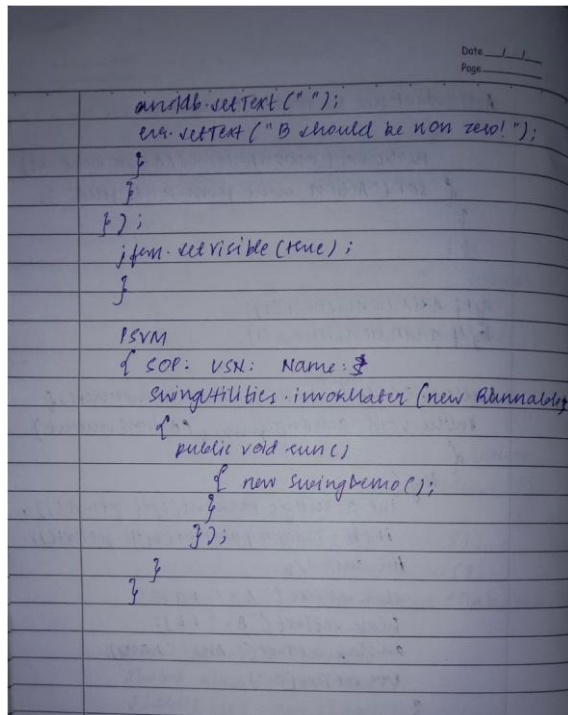 Date
Page
anslab.setText(" ");
err.setText("B should be non zero!");
}
}
});
jfrm.setVisible(true);
}
PSVM
{ SOP: USN: Name:
SwingUtilities.invokeLater(new Runnable
{
public void run()
{ new SwingDemo();
}
});
}
}